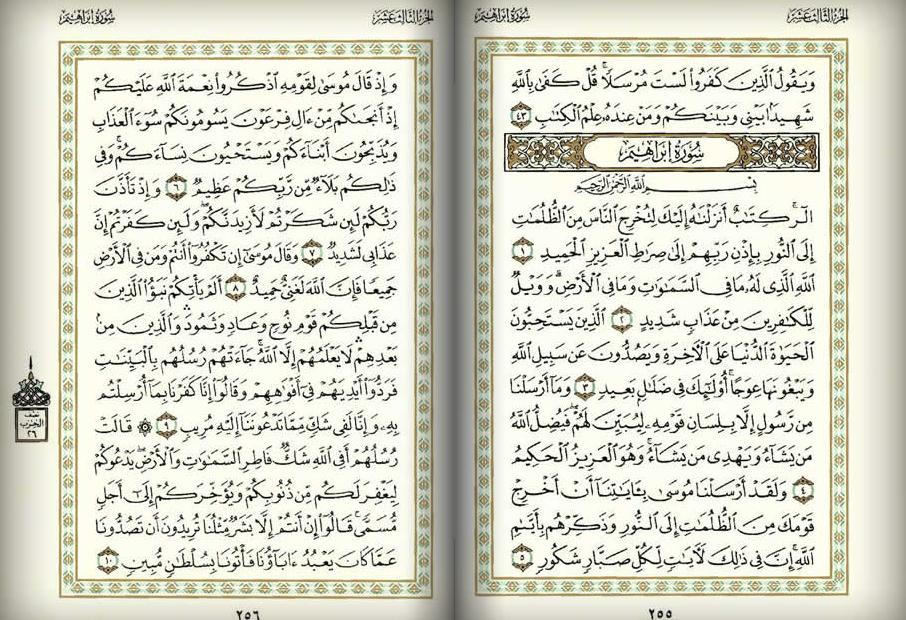 الجزء الثالث عشر
سورة إبراهيم
وَيَقُولُ ٱلَّذِينَ كَفَرُوا۟ لَسْتَ مُرْسَلًا ۚ قُلْ كَفَىٰ بِٱللَّهِ
شَهِيدًۢا بَيْنِى وَبَيْنَكُمْ وَمَنْ عِندَهُۥ عِلْمُ ٱلْكِتَٰبِ ٤٣
سُورَةُ إِبْرَاهِيمَ
بِسْمِ ٱللَّهِ ٱلرَّحْمَٰنِ ٱلرَّحِيمِ
الٓر ۚ كِتَٰبٌ أَنزَلْنَٰهُ إِلَيْكَ لِتُخْرِجَ ٱلنَّاسَ مِنَ ٱلظُّلُمَٰتِ
إِلَى ٱلنُّورِ بِإِذْنِ رَبِّهِمْ إِلَىٰ صِرَٰطِ ٱلْعَزِيزِ ٱلْحَمِيدِ ١
ٱللَّهِ ٱلَّذِى لَهُۥ مَا فِى ٱلسَّمَٰوَٰتِ وَمَا فِى ٱلْأَرْضِ ۗ وَوَيْلٌ
لِّلْكَٰفِرِينَ مِنْ عَذَابٍ شَدِيدٍ ٢ ٱلَّذِينَ يَسْتَحِبُّونَ
ٱلْحَيَوٰةَ ٱلدُّنْيَا عَلَى ٱلْءَاخِرَةِ وَيَصُدُّونَ عَن سَبِيلِ ٱللَّهِ
وَيَبْغُونَهَا عِوَجًا ۚ أُو۟لَٰٓئِكَ فِى ضَلَٰلٍۭ بَعِيدٍ ٣ وَمَآ أَرْسَلْنَا
مِن رَّسُولٍ إِلَّا بِلِسَانِ قَوْمِهِۦ لِيُبَيِّنَ لَهُمْ ۖ فَيُضِلُّ ٱللَّهُ
مَن يَشَآءُ وَيَهْدِى مَن يَشَآءُ ۚ وَهُوَ ٱلْعَزِيزُ ٱلْحَكِيمُ
٤ وَلَقَدْ أَرْسَلْنَا مُوسَىٰ بِـَٔايَٰتِنَآ أَنْ أَخْرِجْ
قَوْمَكَ مِنَ ٱلظُّلُمَٰتِ إِلَى ٱلنُّورِ وَذَكِّرْهُم بِأَيَّىٰمِ
ٱللَّهِ ۚ إِنَّ فِى ذَٰلِكَ لَءَايَٰتٍ لِّكُلِّ صَبَّارٍ شَكُورٍ ٥
٢٥٥
الجزء الثالث عشر
سورة إبراهيم
وَإِذْ قَالَ مُوسَىٰ لِقَوْمِهِ ٱذْكُرُوا۟ نِعْمَةَ ٱللَّهِ عَلَيْكُمْ
إِذْ أَنجَىٰكُم مِّنْ ءَالِ فِرْعَوْنَ يَسُومُونَكُمْ سُوٓءَ ٱلْعَذَابِ
وَيُذَبِّحُونَ أَبْنَآءَكُمْ وَيَسْتَحْيُونَ نِسَآءَكُمْ ۚ وَفِى
ذَٰلِكُم بَلَآءٌ مِّن رَّبِّكُمْ عَظِيمٌ ٦ وَإِذْ تَأَذَّنَ
رَبُّكُمْ لَئِن شَكَرْتُمْ لَأَزِيدَنَّكُمْ ۖ وَلَئِن كَفَرْتُمْ إِنَّ
عَذَابِى لَشَدِيدٌ ٧ وَقَالَ مُوسَىٰٓ إِن تَكْفُرُوٓا۟ أَنتُمْ وَمَن فِى ٱلْأَرْضِ
جَمِيعًا فَإِنَّ ٱللَّهَ لَغَنِىٌّ حَمِيدٌ ٨ أَلَمْ يَأْتِكُمْ نَبَؤُا۟ ٱلَّذِينَ
مِن قَبْلِكُمْ قَوْمِ نُوحٍ وَعَادٍ وَثَمُودَ ۛ وَٱلَّذِينَ مِنۢ
بَعْدِهِمْ ۛ لَا يَعْلَمُهُمْ إِلَّا ٱللَّهُ ۚ جَآءَتْهُمْ رُسُلُهُم بِٱلْبَيِّنَٰتِ
فَرَدُّوٓا۟ أَيْدِيَهُمْ فِىٓ أَفْوَٰهِهِمْ وَقَالُوٓا۟ إِنَّا كَفَرْنَا بِمَآ أُرْسِلْتُم
بِهِۦ وَإِنَّا لَفِى شَكٍّ مِّمَّا تَدْعُونَنَآ إِلَيْهِ مُرِيبٍ ٩ ۞ قَالَتْ
رُسُلُهُمْ أَفِى ٱللَّهِ شَكٌّ فَاطِرِ ٱلسَّمَٰوَٰتِ وَٱلْأَرْضِ ۖ يَدْعُوكُمْ
لِيَغْفِرَ لَكُم مِّن ذُنُوبِكُمْ وَيُؤَخِّرَكُمْ إِلَىٰٓ أَجَلٍ
مُّسَمًّى ۚ قَالُوٓا۟ إِنْ أَنتُمْ إِلَّا بَشَرٌ مِّثْلُنَا تُرِيدُونَ أَن تَصُدُّونَا
عَمَّا كَانَ يَعْبُدُ ءَابَآؤُنَا فَأْتُونَا بِسُلْطَٰنٍ مُّبِينٍ ١٠
نصف
الحزب
٢٦
٢٥٦